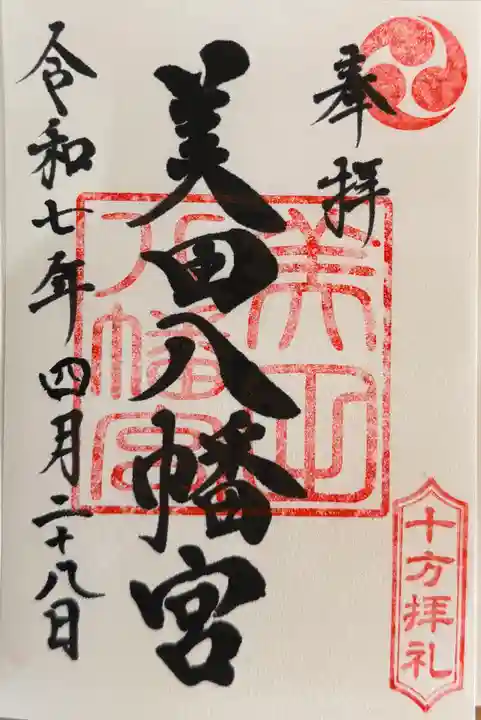 奉拝
美田八幡宮
美田八幡宮
令和七年四月二十八日
十方拝礼